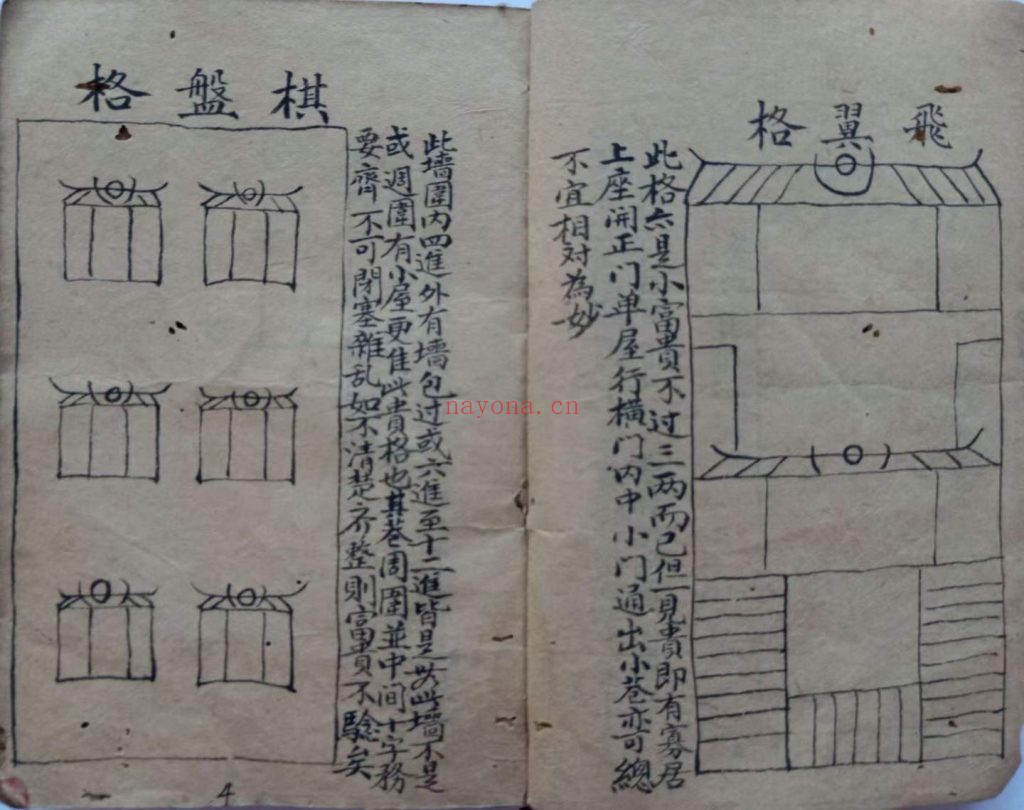 飛翼格
此格亦是小富貴不过三两而已但一見貴即有寡居
上座開正门单屋行橫门内中小门通出小巷亦可總
不宜相对為妙
棋盤格
此墻圍内四進外有墻包过或六進至十二進皆是此墻不是
或週圍有小屋更佳此貴格也其巷周圍並中间十字務
要齊不可閉塞雜乱如不清楚齐整則富貴不驗矣
4
nayona.cn